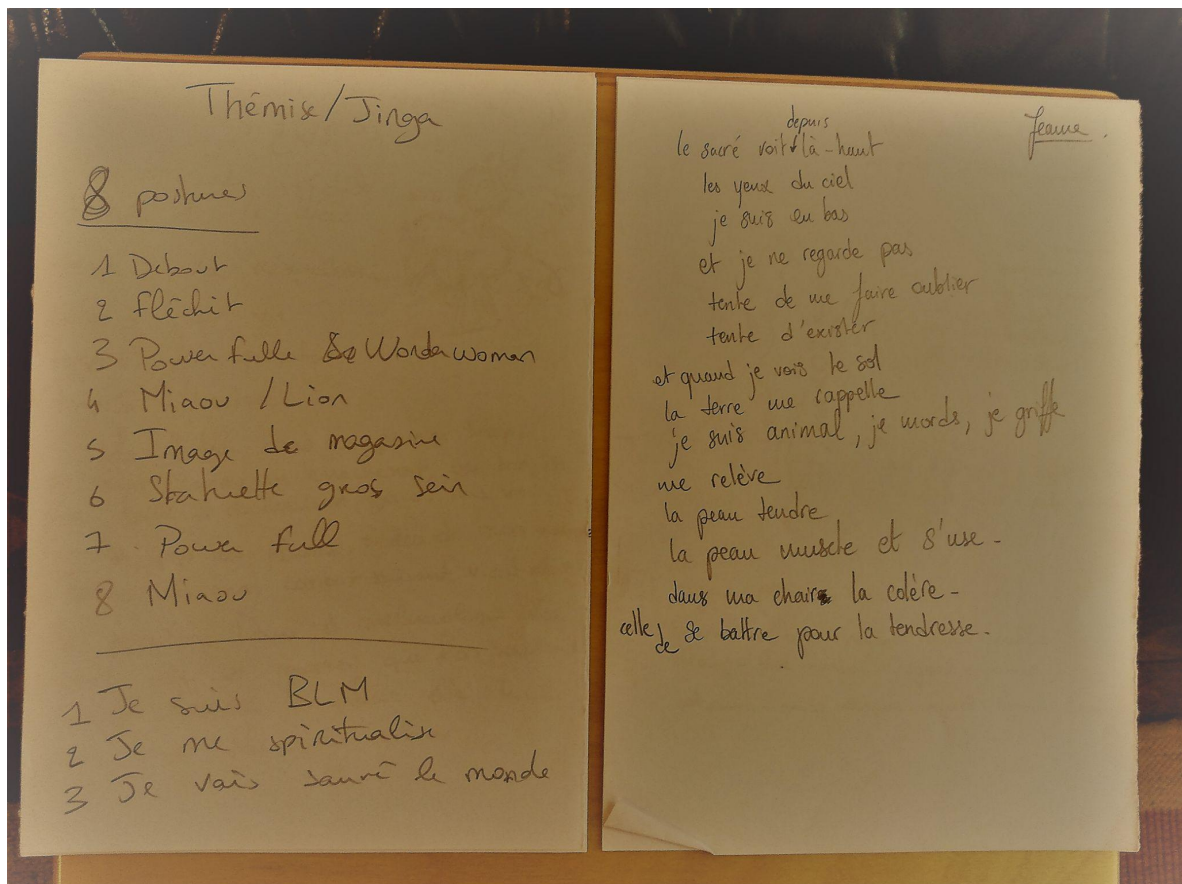 Thémise/Jinga
8 postures
1 Debout
2 fléchit
3 Power fulle Wonderwoman
4 Miaou / Lion
5 Image de magasine
6 Statuette gros sein
7 Power full
8 Miaou
1 Je suis BLM
2 Je me spiritualise
3 Je vais sauvé le monde
Jeanne.
depuis
le sacré voit là-haut
les yeux du ciel
je suis en bas
et je ne regarde pas
tente de me faire oublier
tente d'exister
et quand je vois le sol
la terre me rappelle
je suis animal, je mords, je griffe
me relève
la peau tendre
la peau muscle et s'use -
dans ma chair la colère -
celle de se battre pour la tendresse.